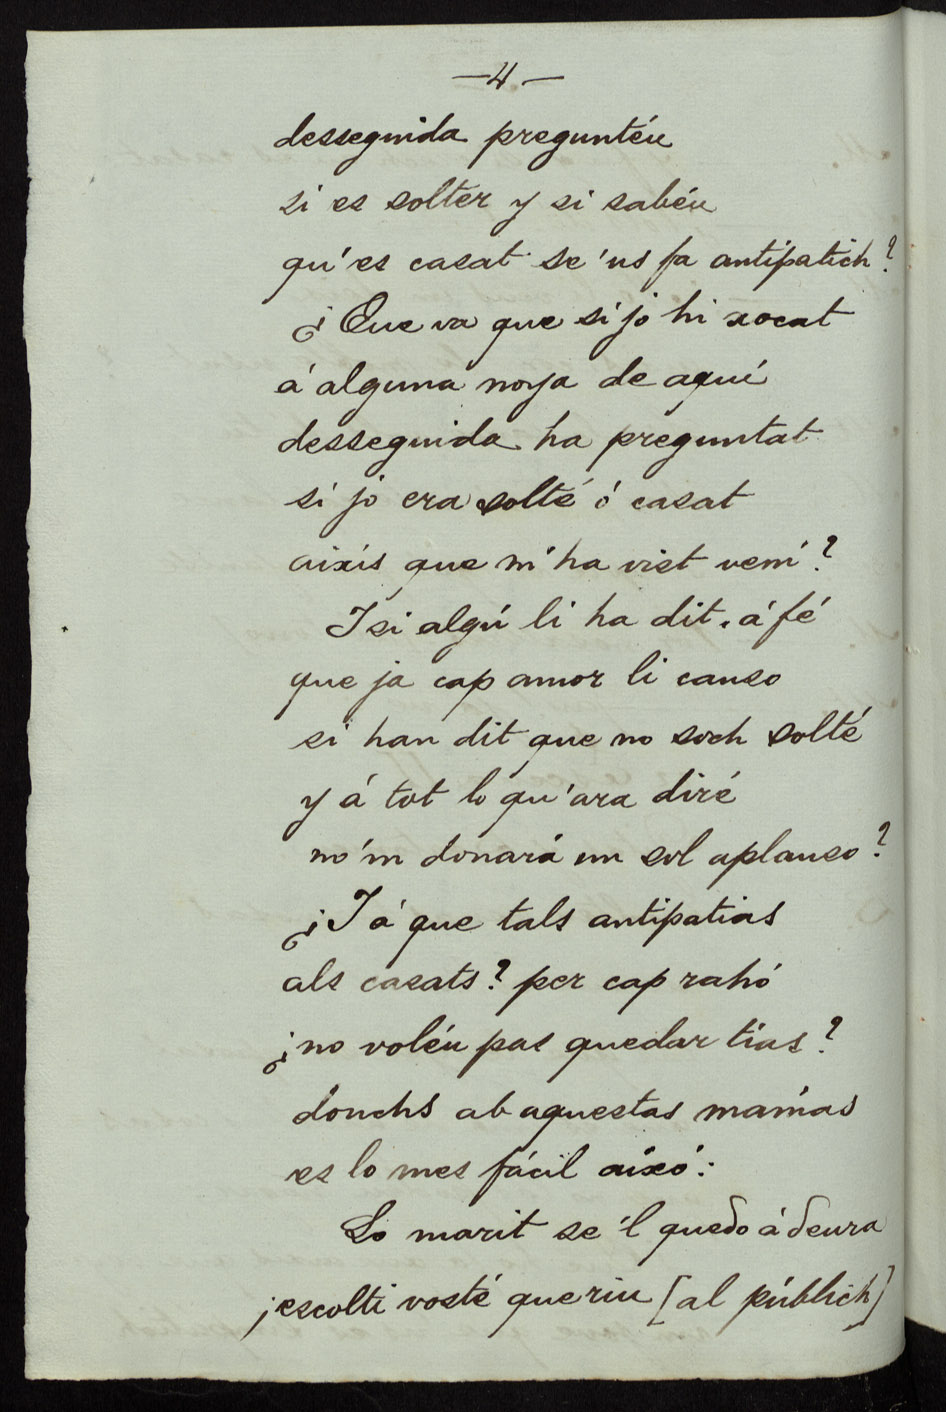 —4—
desseguida preguntéu
si es solter y si sabéu
qu'es casat se'us fa antipatich?
¿Que va que si jo hi xocat
á alguna noya de aquí
desseguida ha preguntat
si jo era solté ó casat
aixís que m'ha vist vení?
I si algú li ha dit, á fé
que ja cap amor li causo
si han dit que no soch solté
y á tot lo qu'ara diré
no'm donará un sol aplauso?
¿I á que tals antipatias
als casats? per cap rahó
¿no voléu pas quedar tías?
donchs ab aquestas mamás
es lo mes fácil aixó:
Lo marit se'l quedo á deura
¡escolti vosté que riu [al públich]